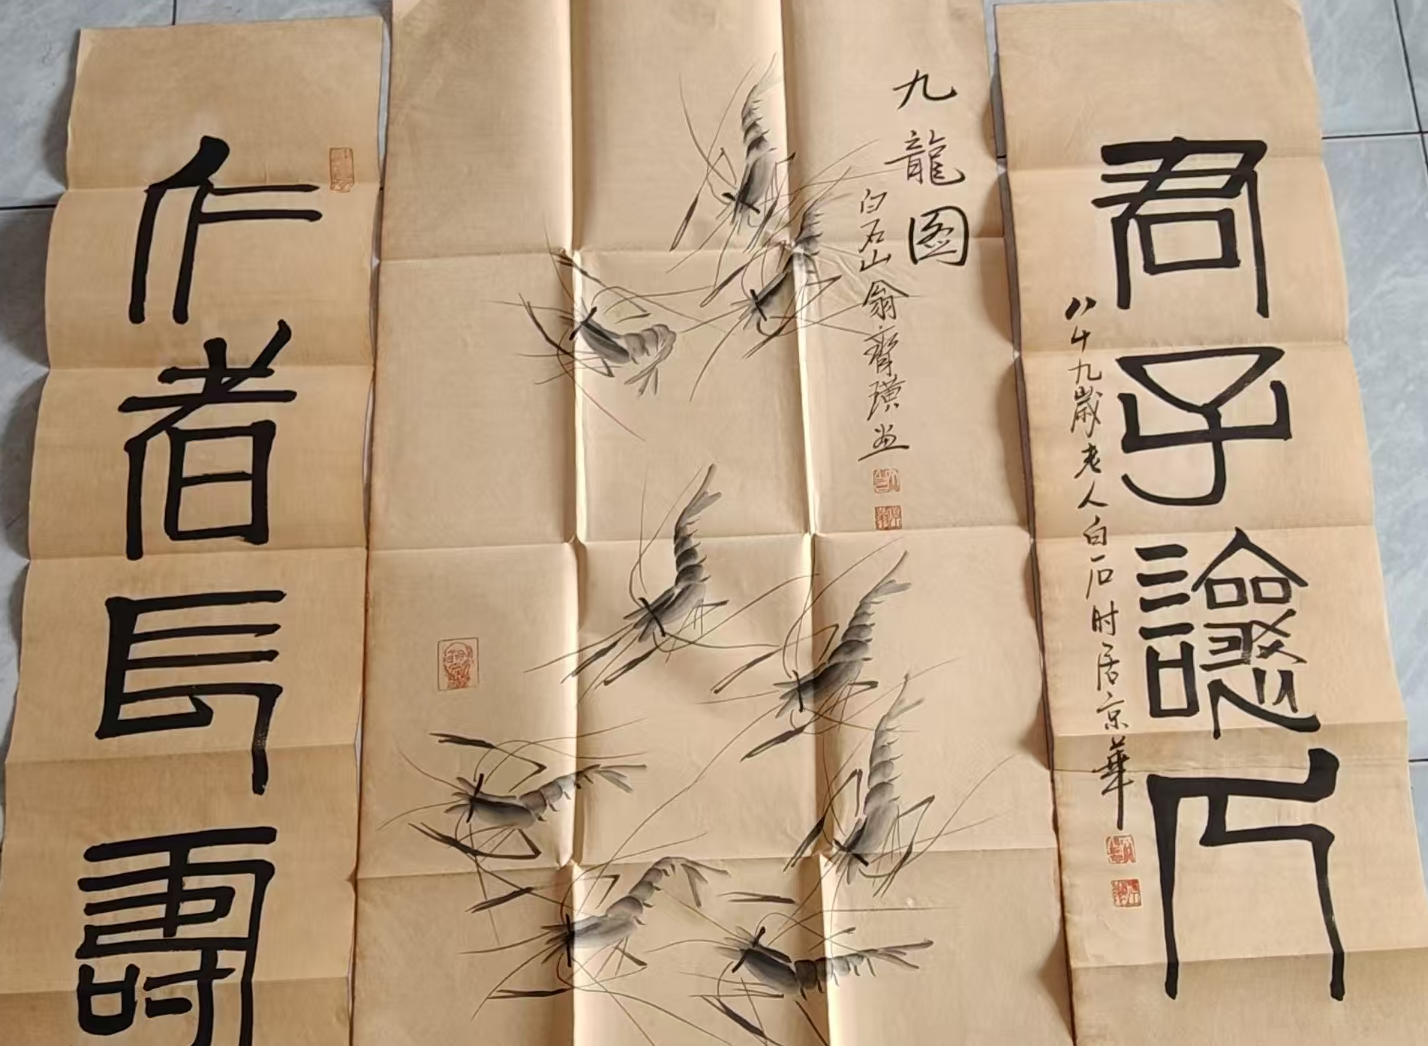 君子
八十九歲老人白石时居京華
九龍图
白石山翁齊璜画
仁者長壽